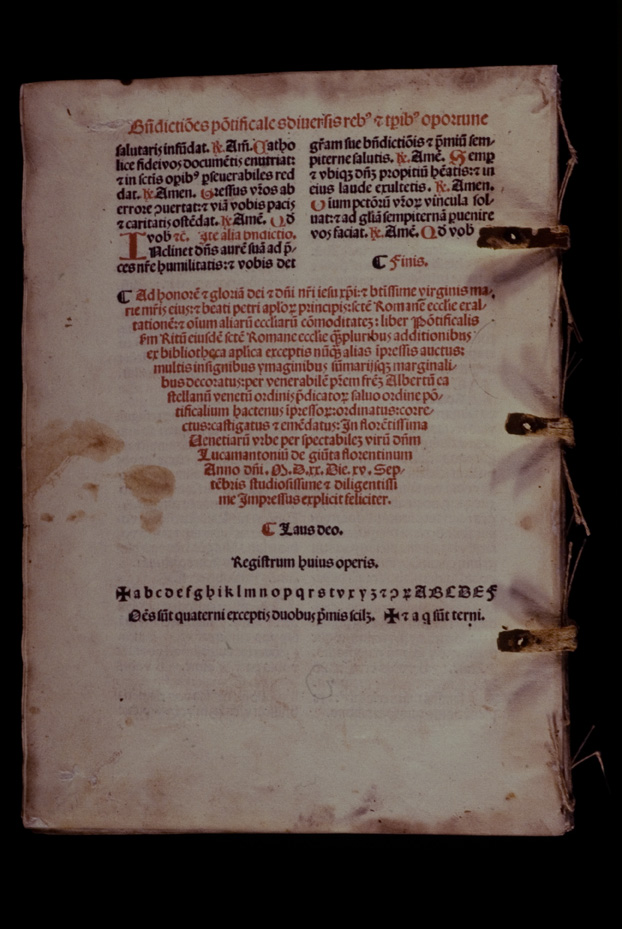 Bñdictiões põtificales diuersis rebꝰ ⁊ tp̃ibꝰ oportune
salutaris infũdat. ℟. Am̃. Catho
lice fidei vos documẽtis enutriat:
⁊ in sctis opibꝰ ꝑseuerabiles red
dat. ℟. Amen. Gressus vr̃os ab
errore ꝯuertat: ⁊ viã vobis pacis
⁊ caritatis ostẽdat. ℟. Amẽ. Qd
vobꝭ ⁊c.
Inclinet dñs aurẽ suã ad p̃-
ces nr̃e humilitatis: ⁊ vobis det
gr̃am sue bñdictiõis ⁊ p̃miũ sem-
piterne salutis. ℟. Amẽ. Semꝑ
⁊ vbiqꝫ dñꝫ propitiũ hẽatis: ⁊ in
eius laude exultetis. ℟. Amen.
Oium pctõrũ vr̃oꝝ vincula sol-
uat: ⁊ ad gliã sempiternã ꝑuenire
vos faciat. ℟. Amẽ. Qd vob
¶ Finis.
¶ Ad honorẽ ⁊ gloriã dei ⁊ dñi nr̃i iesu xp̃i: ⁊ btissime virginis ma-
rie mr̃is eius: ⁊ beati petri apl̃oꝝ principis: sctẽ Romanẽ ecclie exal-
tationẽ: ⁊ oĩum aliarũ eccliarũ cõmoditatẽ: liber Põtificalis
ẜm Ritũ eiusdẽ sctẽ Romane ecclie cũ q̃ꝫpluribus additionibus
ex bibliotheca aplica exceptis nũqꝫ alias ĩpressis auctus:
multis insignibus ymaginibus sũmarijsqꝫ marginali-
bus decoratus: per venerabilẽ p̃rem fr̃eꝫ Albertũ ca
stellanũ venetũ ordinis p̃dicatoꝝ saluo ordine põ-
tificalium hactenus ĩpressoꝝ: ordinatus: corre-
ctus: castigatus ⁊ emẽdatus: In florẽtissima
Uenetiarũ vrbe per spectabileꝫ virũ dñm
Lucamantoniũ de giũta florentinum
Anno dñi. M.D.xx. Die. xv. Sep-
tẽbris studiosissime ⁊ diligentissi
me Impressus explicit feliciter.
¶ Laus deo.
Registrum huius operis.
✠ a b c d e f g h i k l m n o p q r s t v x y ʒ ⁊ ꝯ ꝝ A B C D E F
Oẽs sũt quaterni exceptis duobus p̃mis scilꝫ. ✠ ⁊ a q sũt terni.